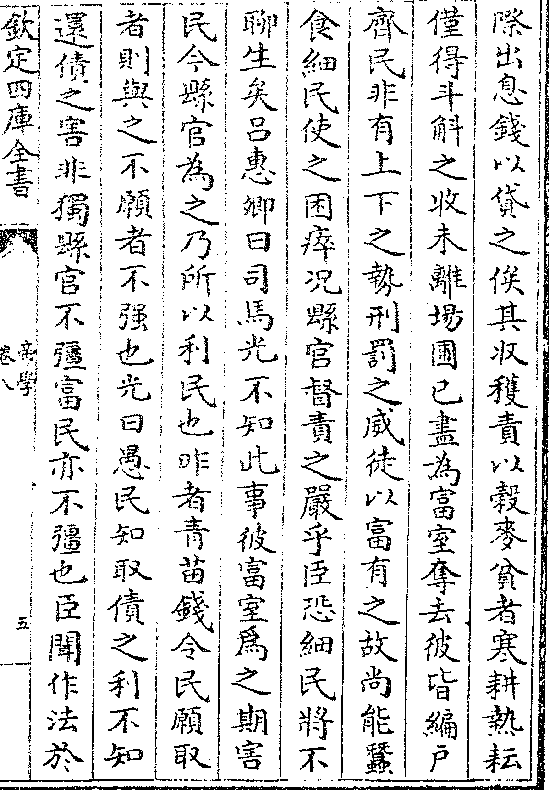 際出息錢以貸之俟其收穫責以穀麥貧者寒耕熱耘
僅得斗斛之收未離場圃已盡為富室奪去彼皆編户
齊民非有上下之勢刑罰之威徒以富有之故尚能蠶
食細民使之困瘁况縣官督責之嚴乎臣恐細民將不
聊生矣吕惠卿曰司馬光不知此事彼富室爲之期害
民今縣官為之乃所以利民也昨者青苗錢令民願取
者則與之不願者不强也光曰愚民知取債之利不知
還債之害非獨縣官不彊富民亦不彊也臣聞作法於
欽定四庫全書
卷八
五